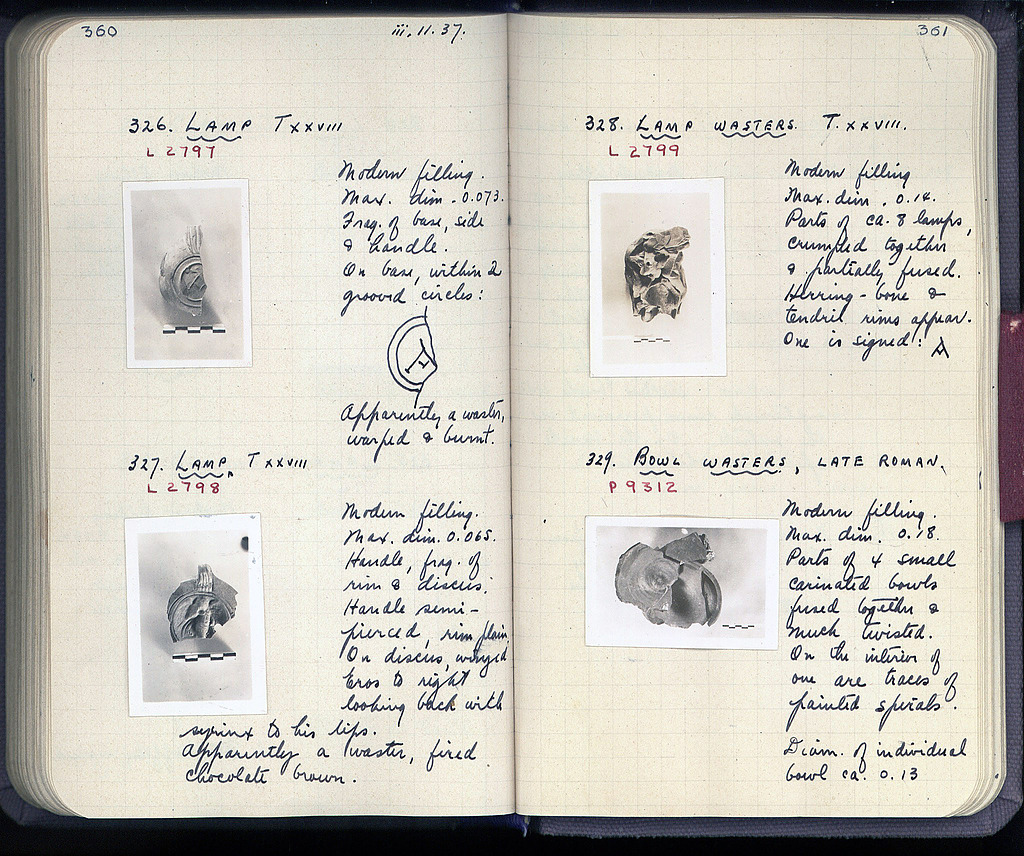 360
iii.11.37.
326. LAMP TXXVIII
L 2797
Modern filling.
Max. dim. 0.073.
Frag. of base, side
& handle.
On base, within 2
grooved circles:
Apparently a waster,
warped & burnt.
327. LAMP, TXXVIII
L 2798
Modern filling.
Max. dim. 0.065.
Handle, frag. of
rim & discus.
Handle semi-
pierced, rim plain
On discus, winged
Eros to right
looking back with
syrinx to his lips.
Apparently a waster, fired
chocolate brown.
361
328. LAMP WASTERS. T.XXVIII.
L 2799
Modern filling
Max. dim. 0.14.
Parts of ca. 8 lamps,
crumpled together
& partially fused.
Herring-bone &
tendril rims appear.
One is signed: A
329. BOWL WASTERS, LATE ROMAN.
P 9312
Modern filling.
Max. dim. 0.18.
Parts of 4 small
carinated bowls
fused together &
much twisted.
On the interior of
one are traces of
painted spirals.
Diam. of individual
bowl ca. 0.13